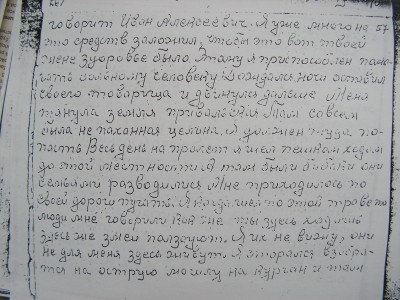 говорит Иван Алексеевич. Я уже много на 57
это средств заложил, чтобы это вот твоей
жене здоровье было. Этому я приспособлен помо-
гать больному человеку Дождался ночи оставил
своего товарища и двинулся дальше Меня
тянула земля привольская Там совсем
была не паханная целина. Я должен туда по-
пасть Весь день на пролет я шел пешком ходом
до этой местности А там были бабаки они
сельями разводились Мне приходилось по
своей дороги пугать. А когда шел по этой траве то
люди мне говорили Вон же ты здесь ходишь
здесь же змеи ползают. Я их не вижу, они
не для меня здесь живут. Я старался взобра-
ться на острую могилу на Курган и там